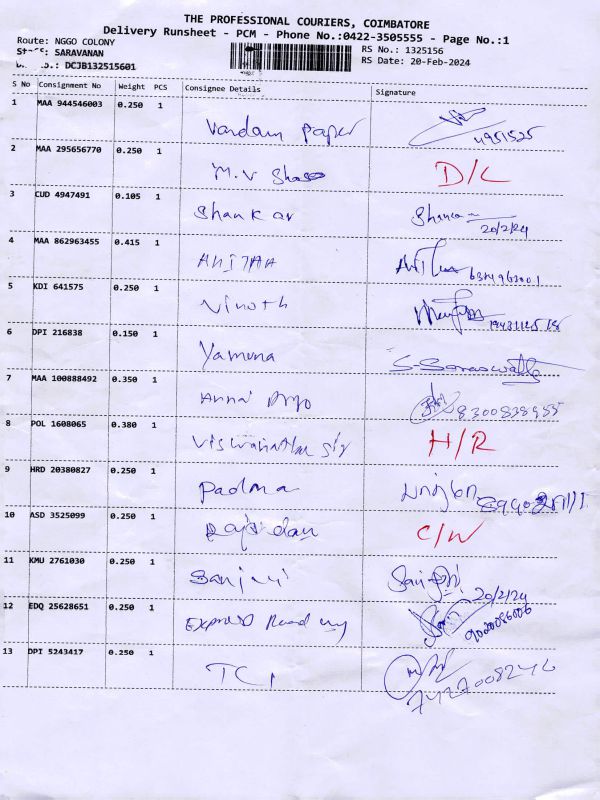 THE PROFESSIONAL COURIERS, COIMBATORE
Delivery Runsheet - PCM - Phone No.:0422-3505555 - Page No.:1
Route: NGGO COLONY
SARAVANAN
DCJB132515601
RS No.: 1325156
RS Date: 20-Feb-2024
S No Consignment No Weight PCS Consignee Details Signature
1 MAA 944546003 0.250 1 Vardam Paper 4951525
2 MAA 295656770 0.250 1 M.V D/L
3 CUD 4947491 0.105 1 Shankar 20/2/24
4 MAA 862963455 0.415 1
5 KDI 641575 0.250 1 Vinoth
6 DPI 216838 0.150 1 Yamuna S-Saraswathy
7 MAA 100888492 0.350 1 Anna 8300838955
8 POL 1608065 0.380 1 H/R
9 HRD 20380827 0.250 1 Padma
10 ASD 3525099 0.250 1 C/W
11 KMU 2761030 0.250 1 Sanjivi
20/2/24
12 EDQ 25628651 0.250 1 Express 9020086006
13 DPI 5243417 0.250 1 TCI